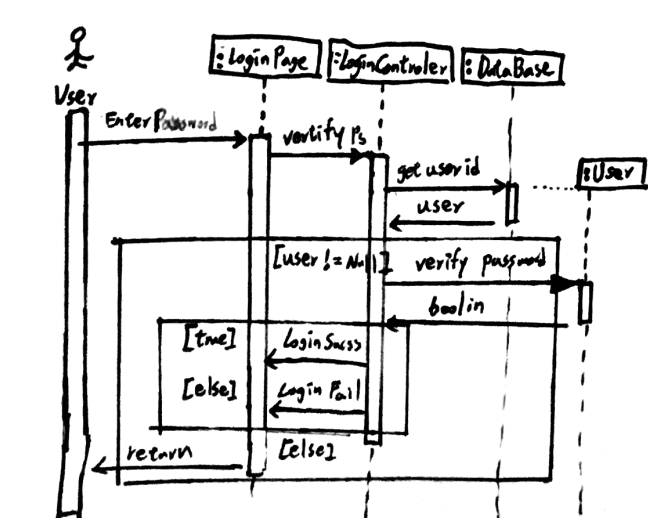 :LoginPage
:LoginControler
:DataBase
User
Enter Password
vertify Ps
get userid
:User
user
[user != Null]
verify password
boolin
[true]
LoginSucss
[else]
Login Fail
return
[else]